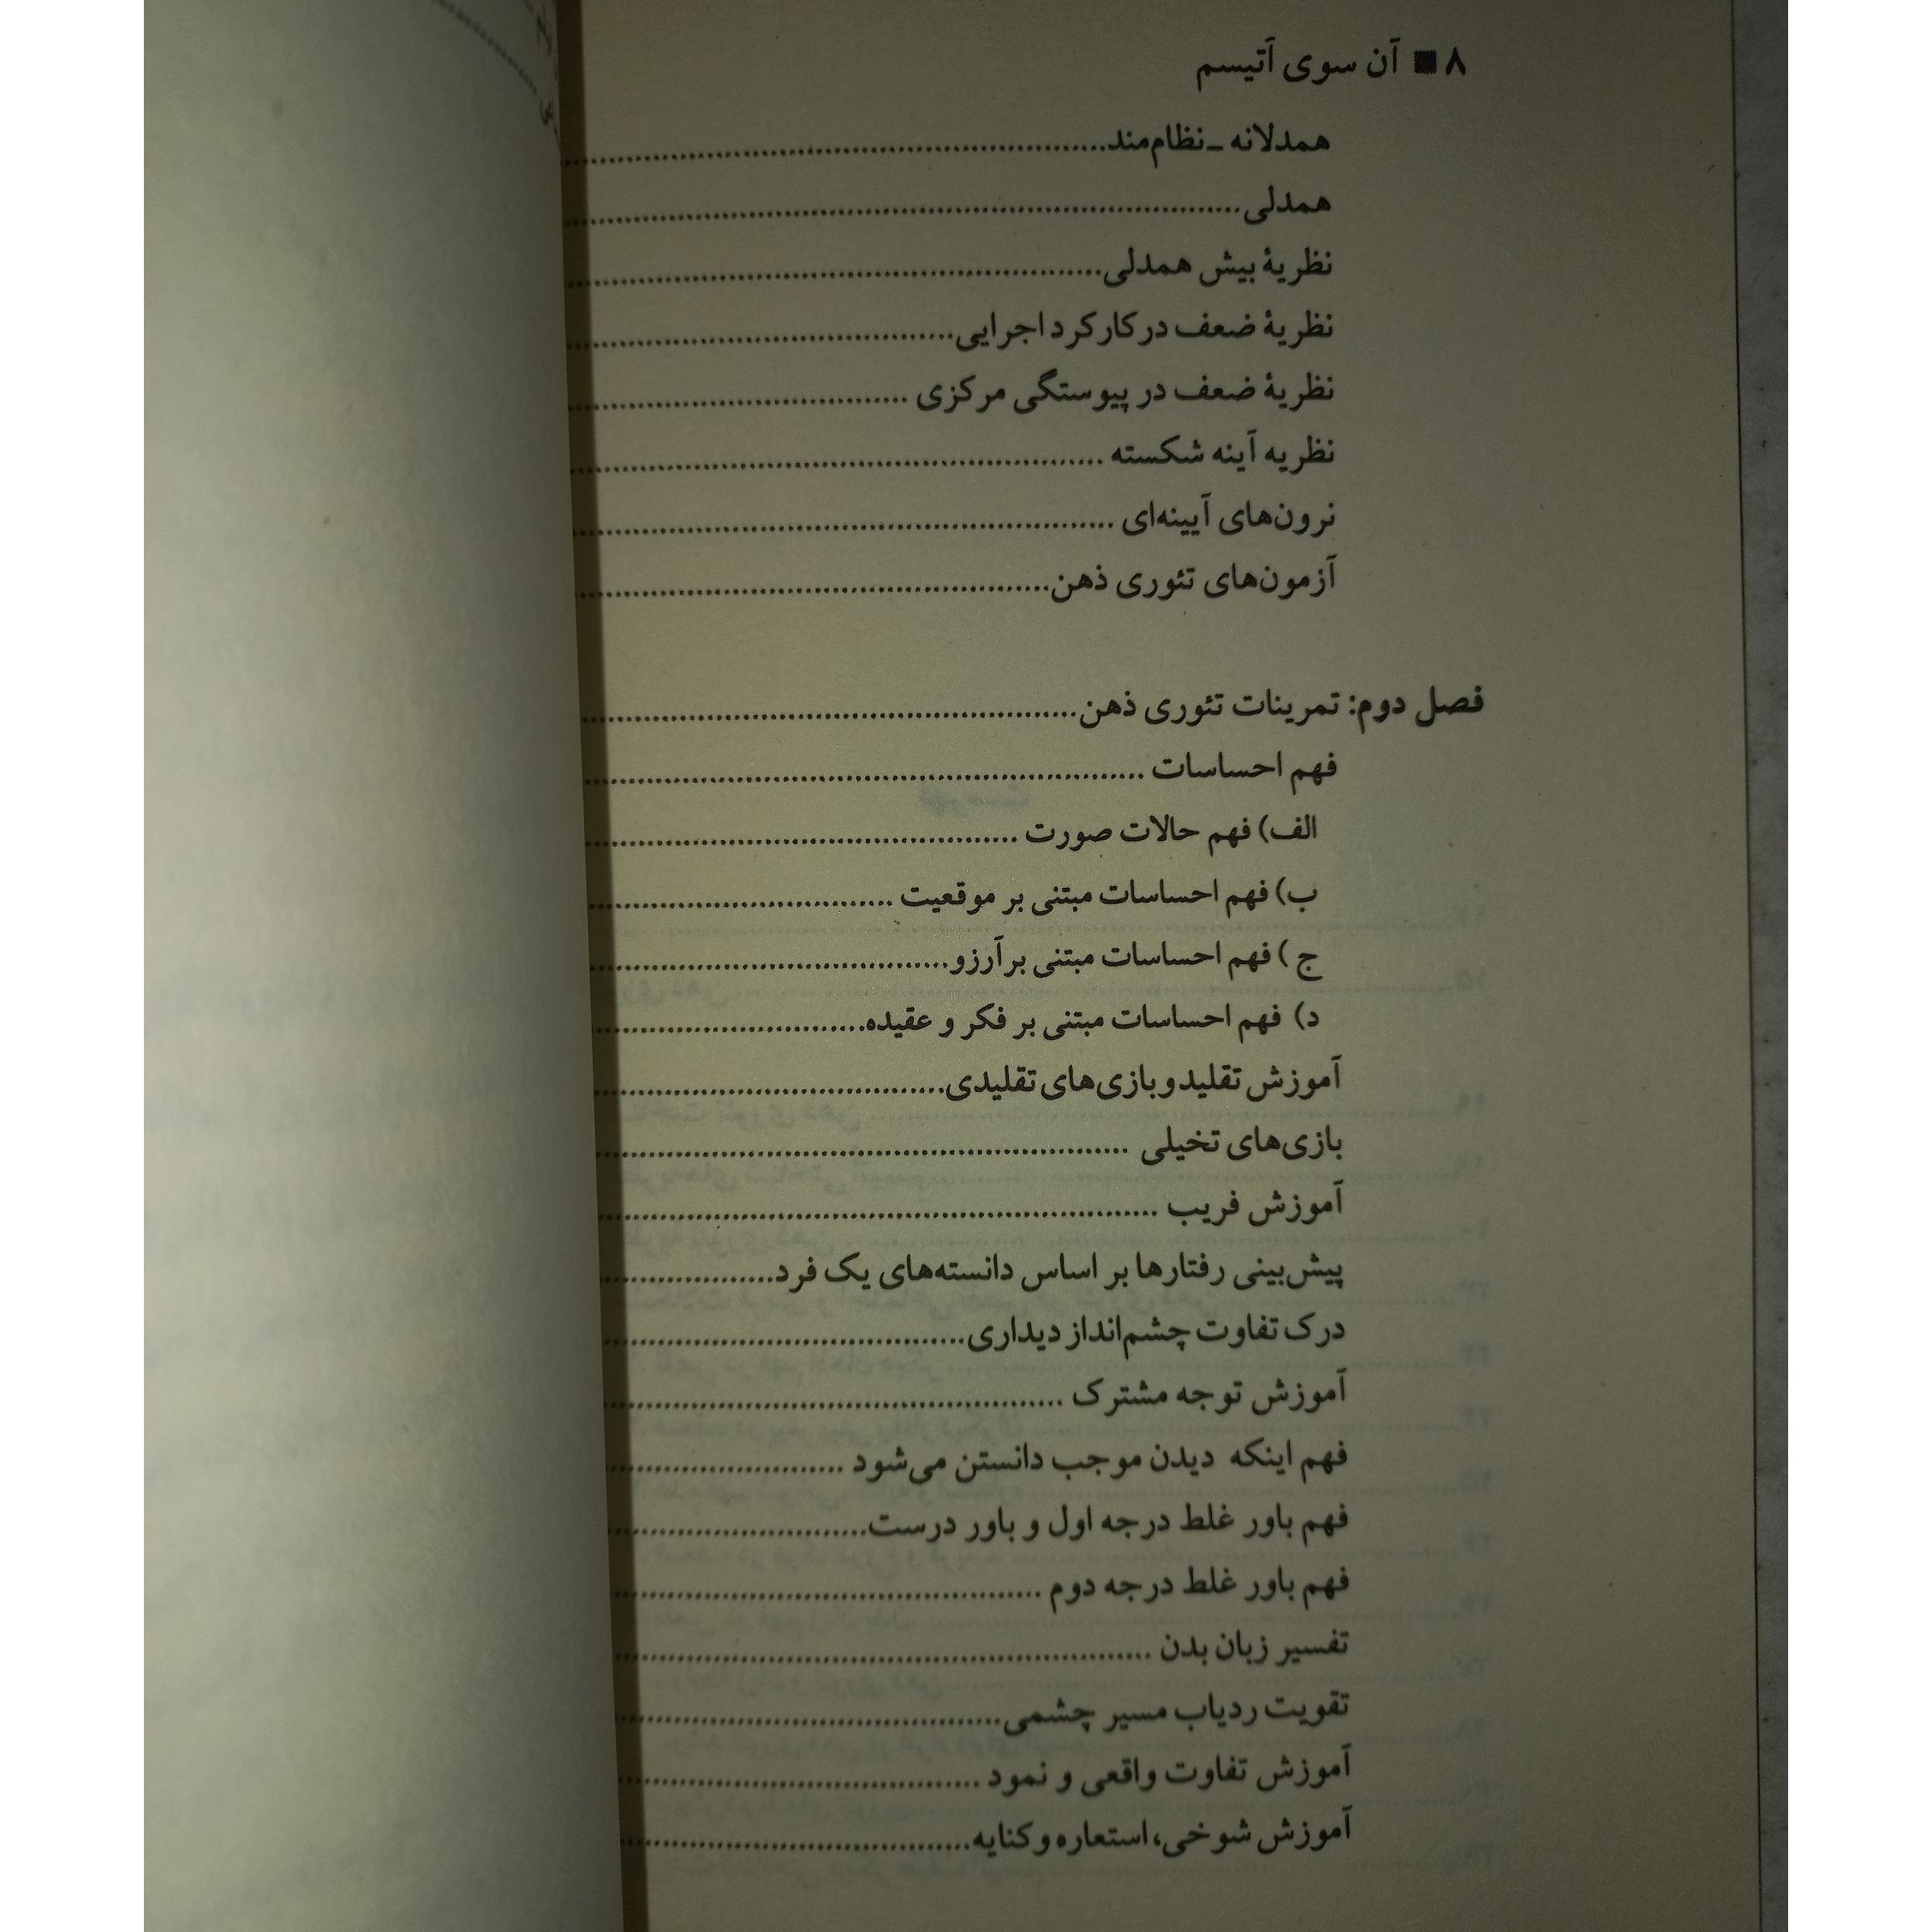 ۸ ■ آن سوی آتیسم
همدلانه ـ نظام‌مند........................................
همدلی........................................
نظریهٔ بیش همدلی........................................
نظریهٔ ضعف در کارکرد اجرایی........................................
نظریهٔ ضعف در پیوستگی مرکزی ........................................
نظریه آینه شکسته ........................................
نرون‌های آیینه‌ای ........................................
آزمون‌های تئوری ذهن........................................
فصل دوم: تمرینات تئوری ذهن........................................
فهم احساسات ........................................
الف) فهم حالات صورت ........................................
ب) فهم احساسات مبتنی بر موقعیت ........................................
ج ) فهم احساسات مبتنی بر آرزو........................................
د) فهم احساسات مبتنی بر فکر و عقیده........................................
آموزش تقلید و بازی‌های تقلیدی........................................
بازی‌های تخیلی ........................................
آموزش فریب ........................................
پیش‌بینی رفتارها بر اساس دانسته‌های یک فرد........................................
درک تفاوت چشم‌انداز دیداری........................................
آموزش توجه مشترک ........................................
فهم اینکه دیدن موجب دانستن می‌شود ........................................
فهم باور غلط درجه اول و باور درست........................................
فهم باور غلط درجه دوم ........................................
تفسیر زبان بدن ........................................
تقویت ردیاب مسیر چشمی........................................
آموزش تفاوت واقعی و نمود ........................................
آموزش شوخی، استعاره و کنایه........................................